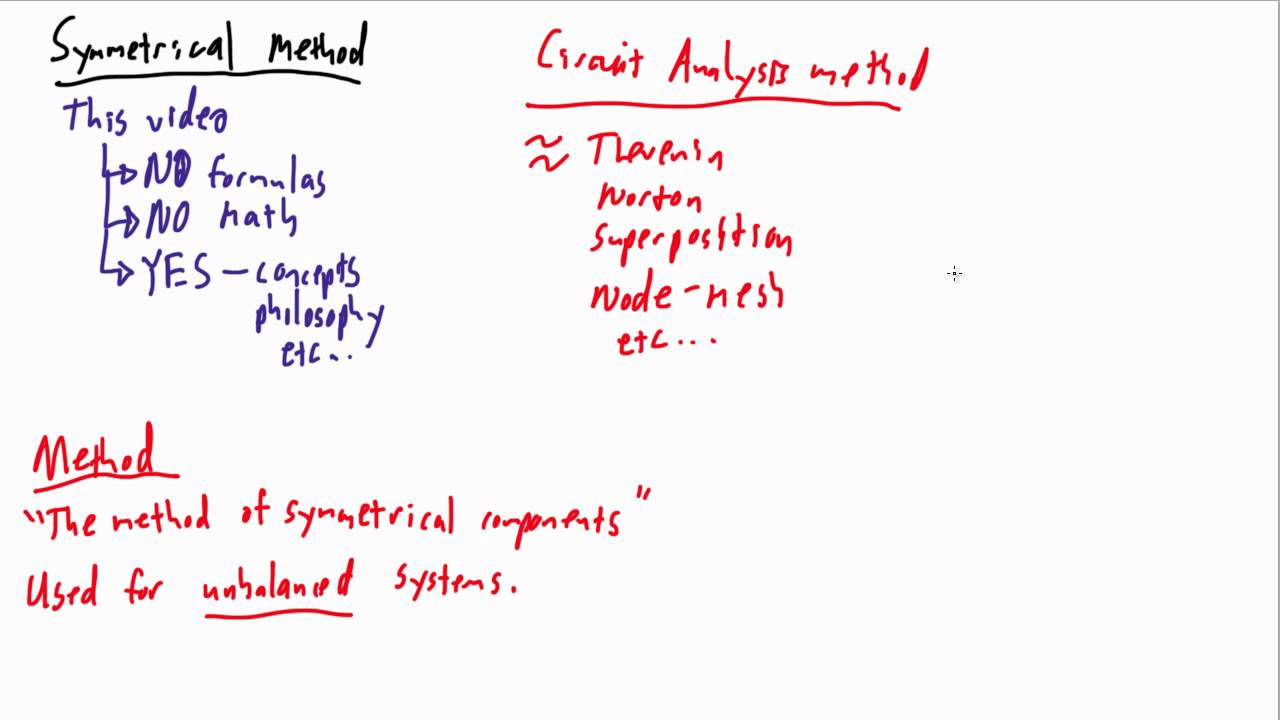 Symmetrical Method
This video
NO formulas
NO Math
YES - concepts
philosophy
etc...
Circuit Analysis method
≈ Thevenin
Norton
Superposition
Node-mesh
etc...
Method
"The method of symmetrical components"
Used for unbalanced systems.